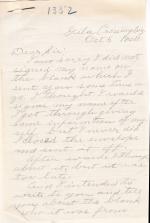 1332
Gila Crossing, Ariz
Oct 6
Dear Sir:
I am sorry I did not
signed my name on
the blank which I
sent you some time a
go. I thought I would
signe my name after
I got through giving
some information of my
self, but I never did
I closed the envelope
and sent it off.
After awhile I though
about it, but it was
too late.
And I intended to
write to you and tell
you about the blank
who it was from